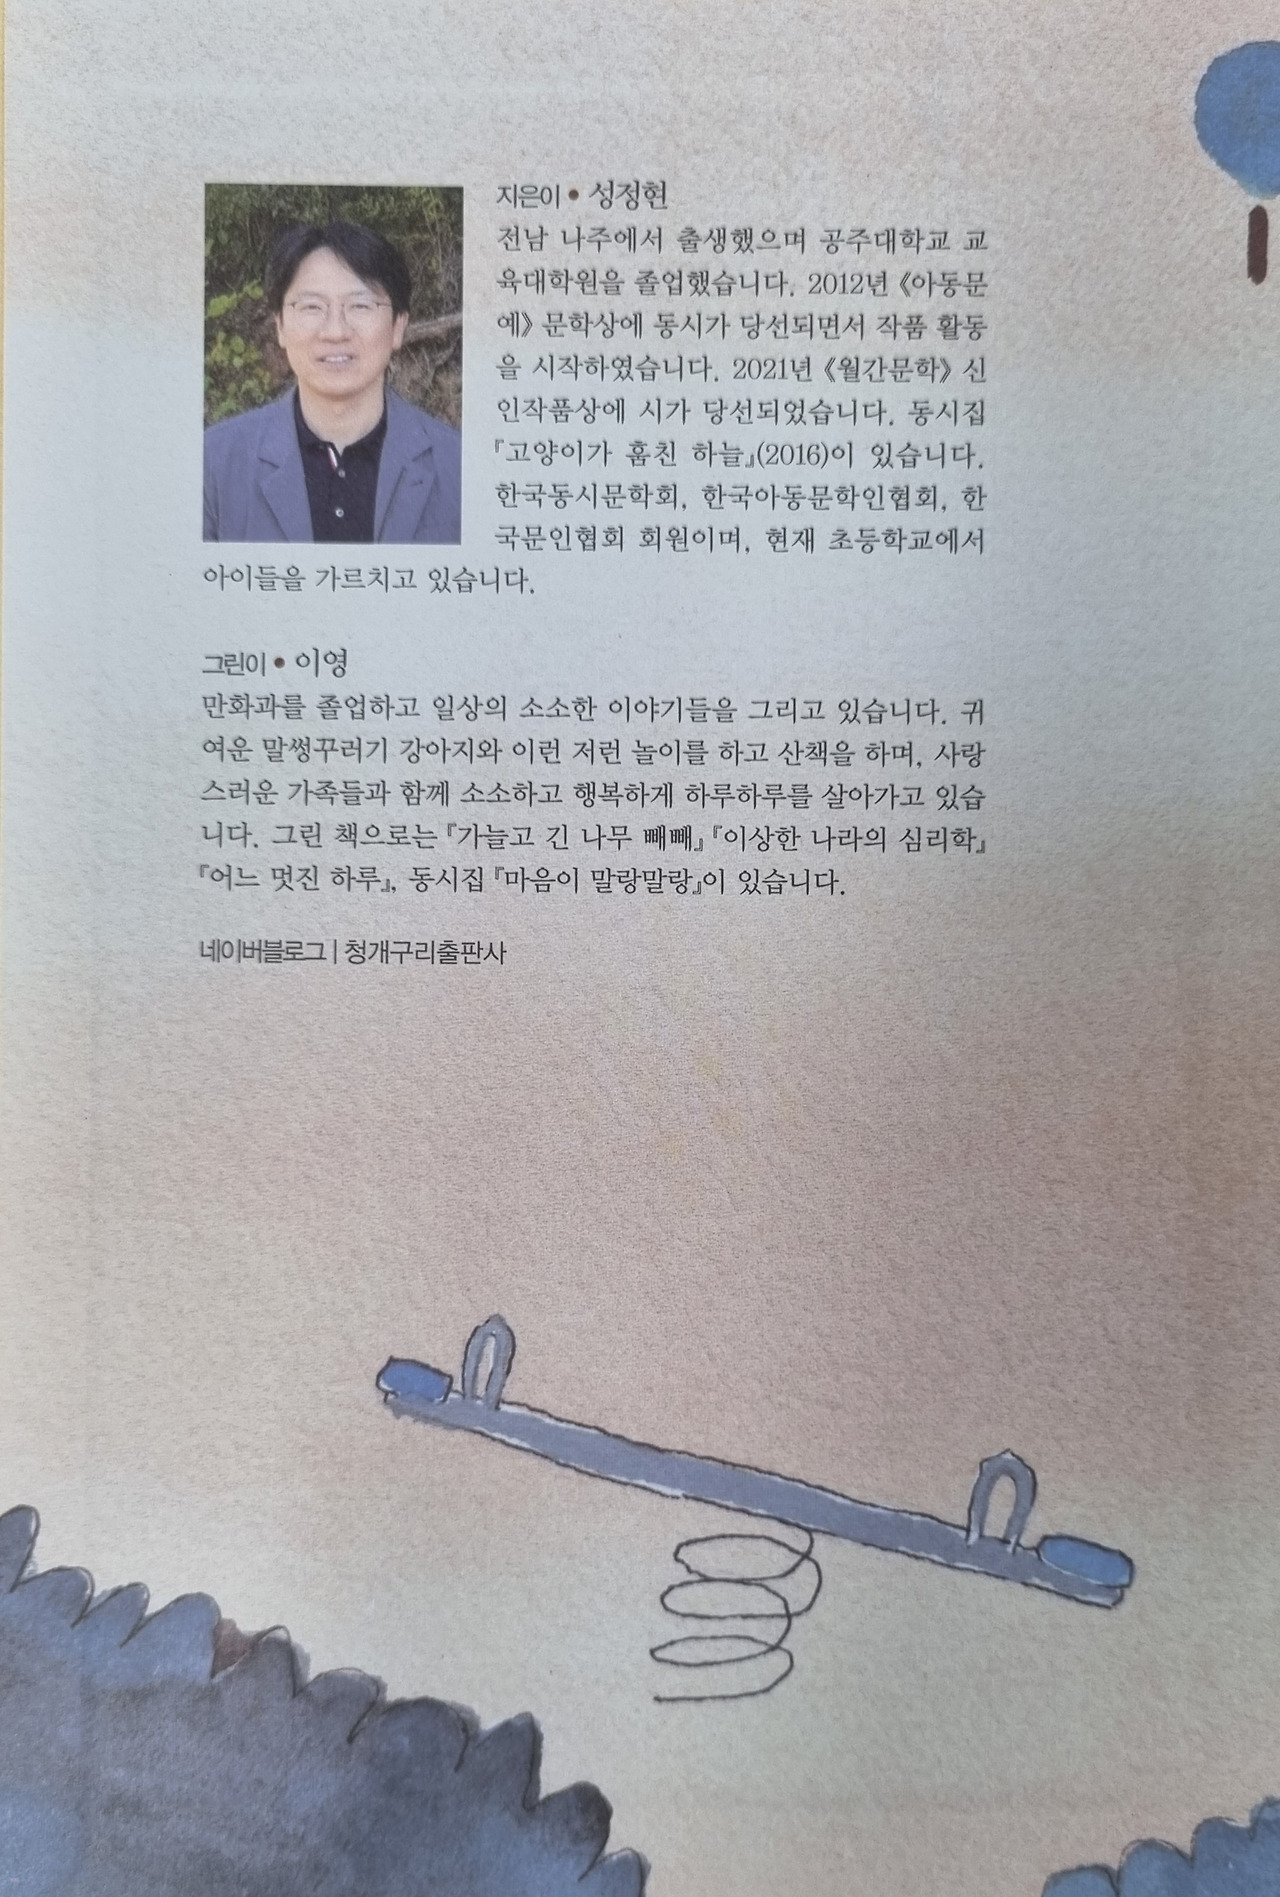 지은이 • 성정현
전남 나주에서 출생했으며 공주대학교 교
육대학원을 졸업했습니다. 2012년 《아동문
예》 문학상에 동시가 당선되면서 작품 활동
을 시작하였습니다. 2021년 《월간문학》 신
인작품상에 시가 당선되었습니다. 동시집
『고양이가 훔친 하늘』(2016)이 있습니다.
한국동시문학회, 한국아동문학인협회, 한
국문인협회 회원이며, 현재 초등학교에서
아이들을 가르치고 있습니다.
그린이 • 이영
만화과를 졸업하고 일상의 소소한 이야기들을 그리고 있습니다. 귀
여운 말썽꾸러기 강아지와 이런 저런 놀이를 하고 산책을 하며, 사랑
스러운 가족들과 함께 소소하고 행복하게 하루하루를 살아가고 있습
니다. 그린 책으로는 『가늘고 긴 나무 빼빼』 『이상한 나라의 심리학』
『어느 멋진 하루』, 동시집 『마음이 말랑말랑』이 있습니다.
네이버블로그 | 청개구리출판사